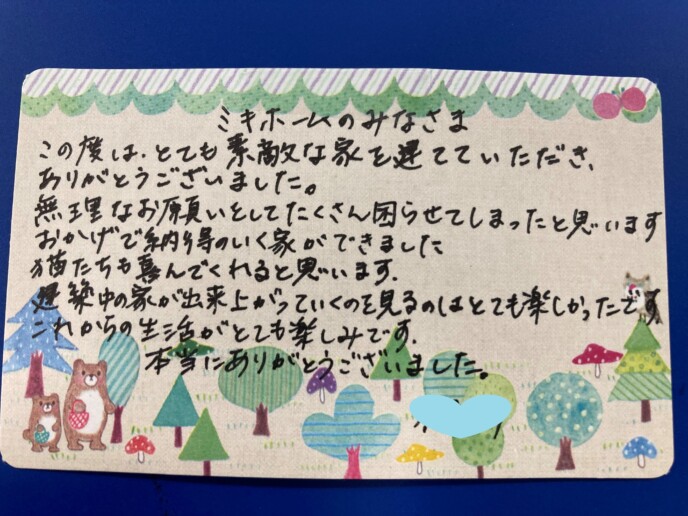 ミキホームのみなさま
この度は、とても素敵な家を建てていただき、
ありがとうございました。
無理なお願いをしてたくさん困らせてしまったと思います
おかげで納得のいく家ができました
猫たちも喜んでくれると思います.
建築中の家が出来上がっていくのを見るのはとても楽しかったです
これからの生活がとても楽しみです.
本当にありがとうございました。